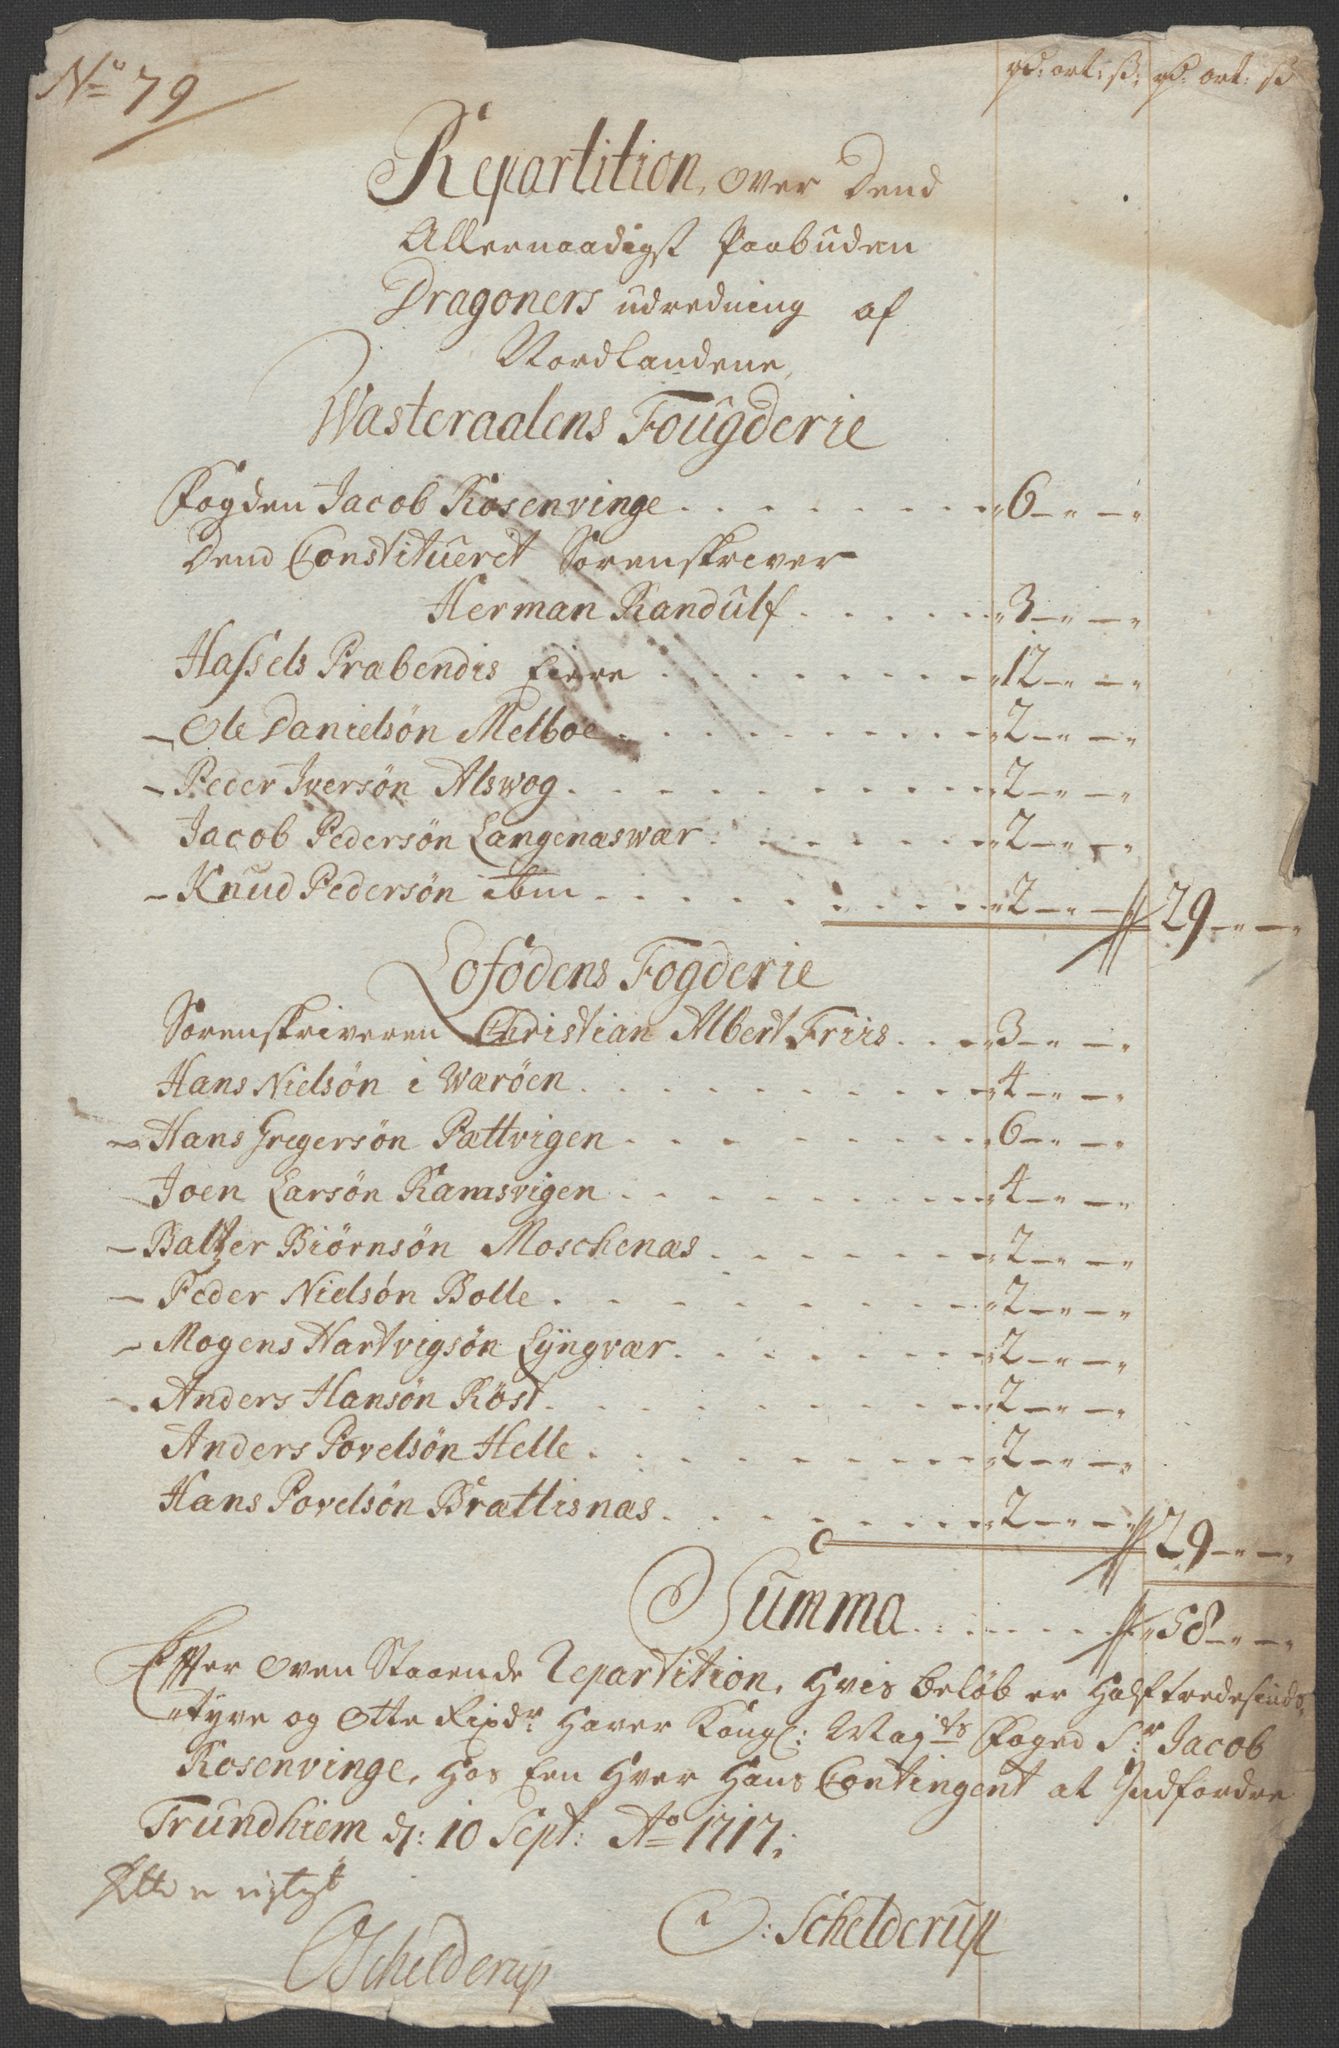 No 79
rd: ort: ß: rd: ort: ß
Repartition, over Dend
Allernaadigst Paabuden
Dragoners udredning af
Nordlandene,
Wasteraalens Fougderie
Fogden Jacob Rosenvinge . . . . . . . 6 — " — "
Dend Constitueret Sorenskriver
Herman Randulf . . . . . 3 — " — "
Hassels Præbendis Eiere . . . . . . . 12 — " — "
— Ole Danielsön Melboe . . . . . . . 2 — " — "
— Peder Iversön Alswog . . . . . . . 2 — " — "
Jacob Pedersön Langenæswær . . . . . . 2 — " — "
— Knud Pedersön ibm . . . . . . . 2 — " — " 29 — " — "
Lofodens Fogderie
Sorenskriveren Christian Albert Friis . . . 3 — " — "
Hans Nielsön i Wæröen . . . . . . . 4 — " — "
— Hans Gregersön Pættvigen . . . . . . 6 — " — "
Joen Larsön Ramsvigen . . . . . . . 4 — " — "
— Baltzer Biörnsön Moschenæs . . . . . 2 — " — "
— Peder Nielsön Bolle . . . . . . . 2 — " — "
— Mogens Hartvigsön Lyngvær . . . . . . 2 — " — "
— Anders Hansön Röst . . . . . . . 2 — " — "
Anders Povelsön Helle . . . . . . . 2 — " — "
Hans Povelsön Brættisnæs . . . . . . 2 — " — " 29 — " — "
Summa . . . . . . 58 — " — "
Effter Oven Staaende Repartition, Hvis beløb er Halftredesinds-
tyve og Otte Rixdr Haver Kongl: Maj:ts Foged Sr: Jacob
Rosenvinge, Hos Een Hver Hans Contingent at Indfordre
Trundhiem d: 10 Sept: Ao 1717:
C: Schelderup
CSchelderup